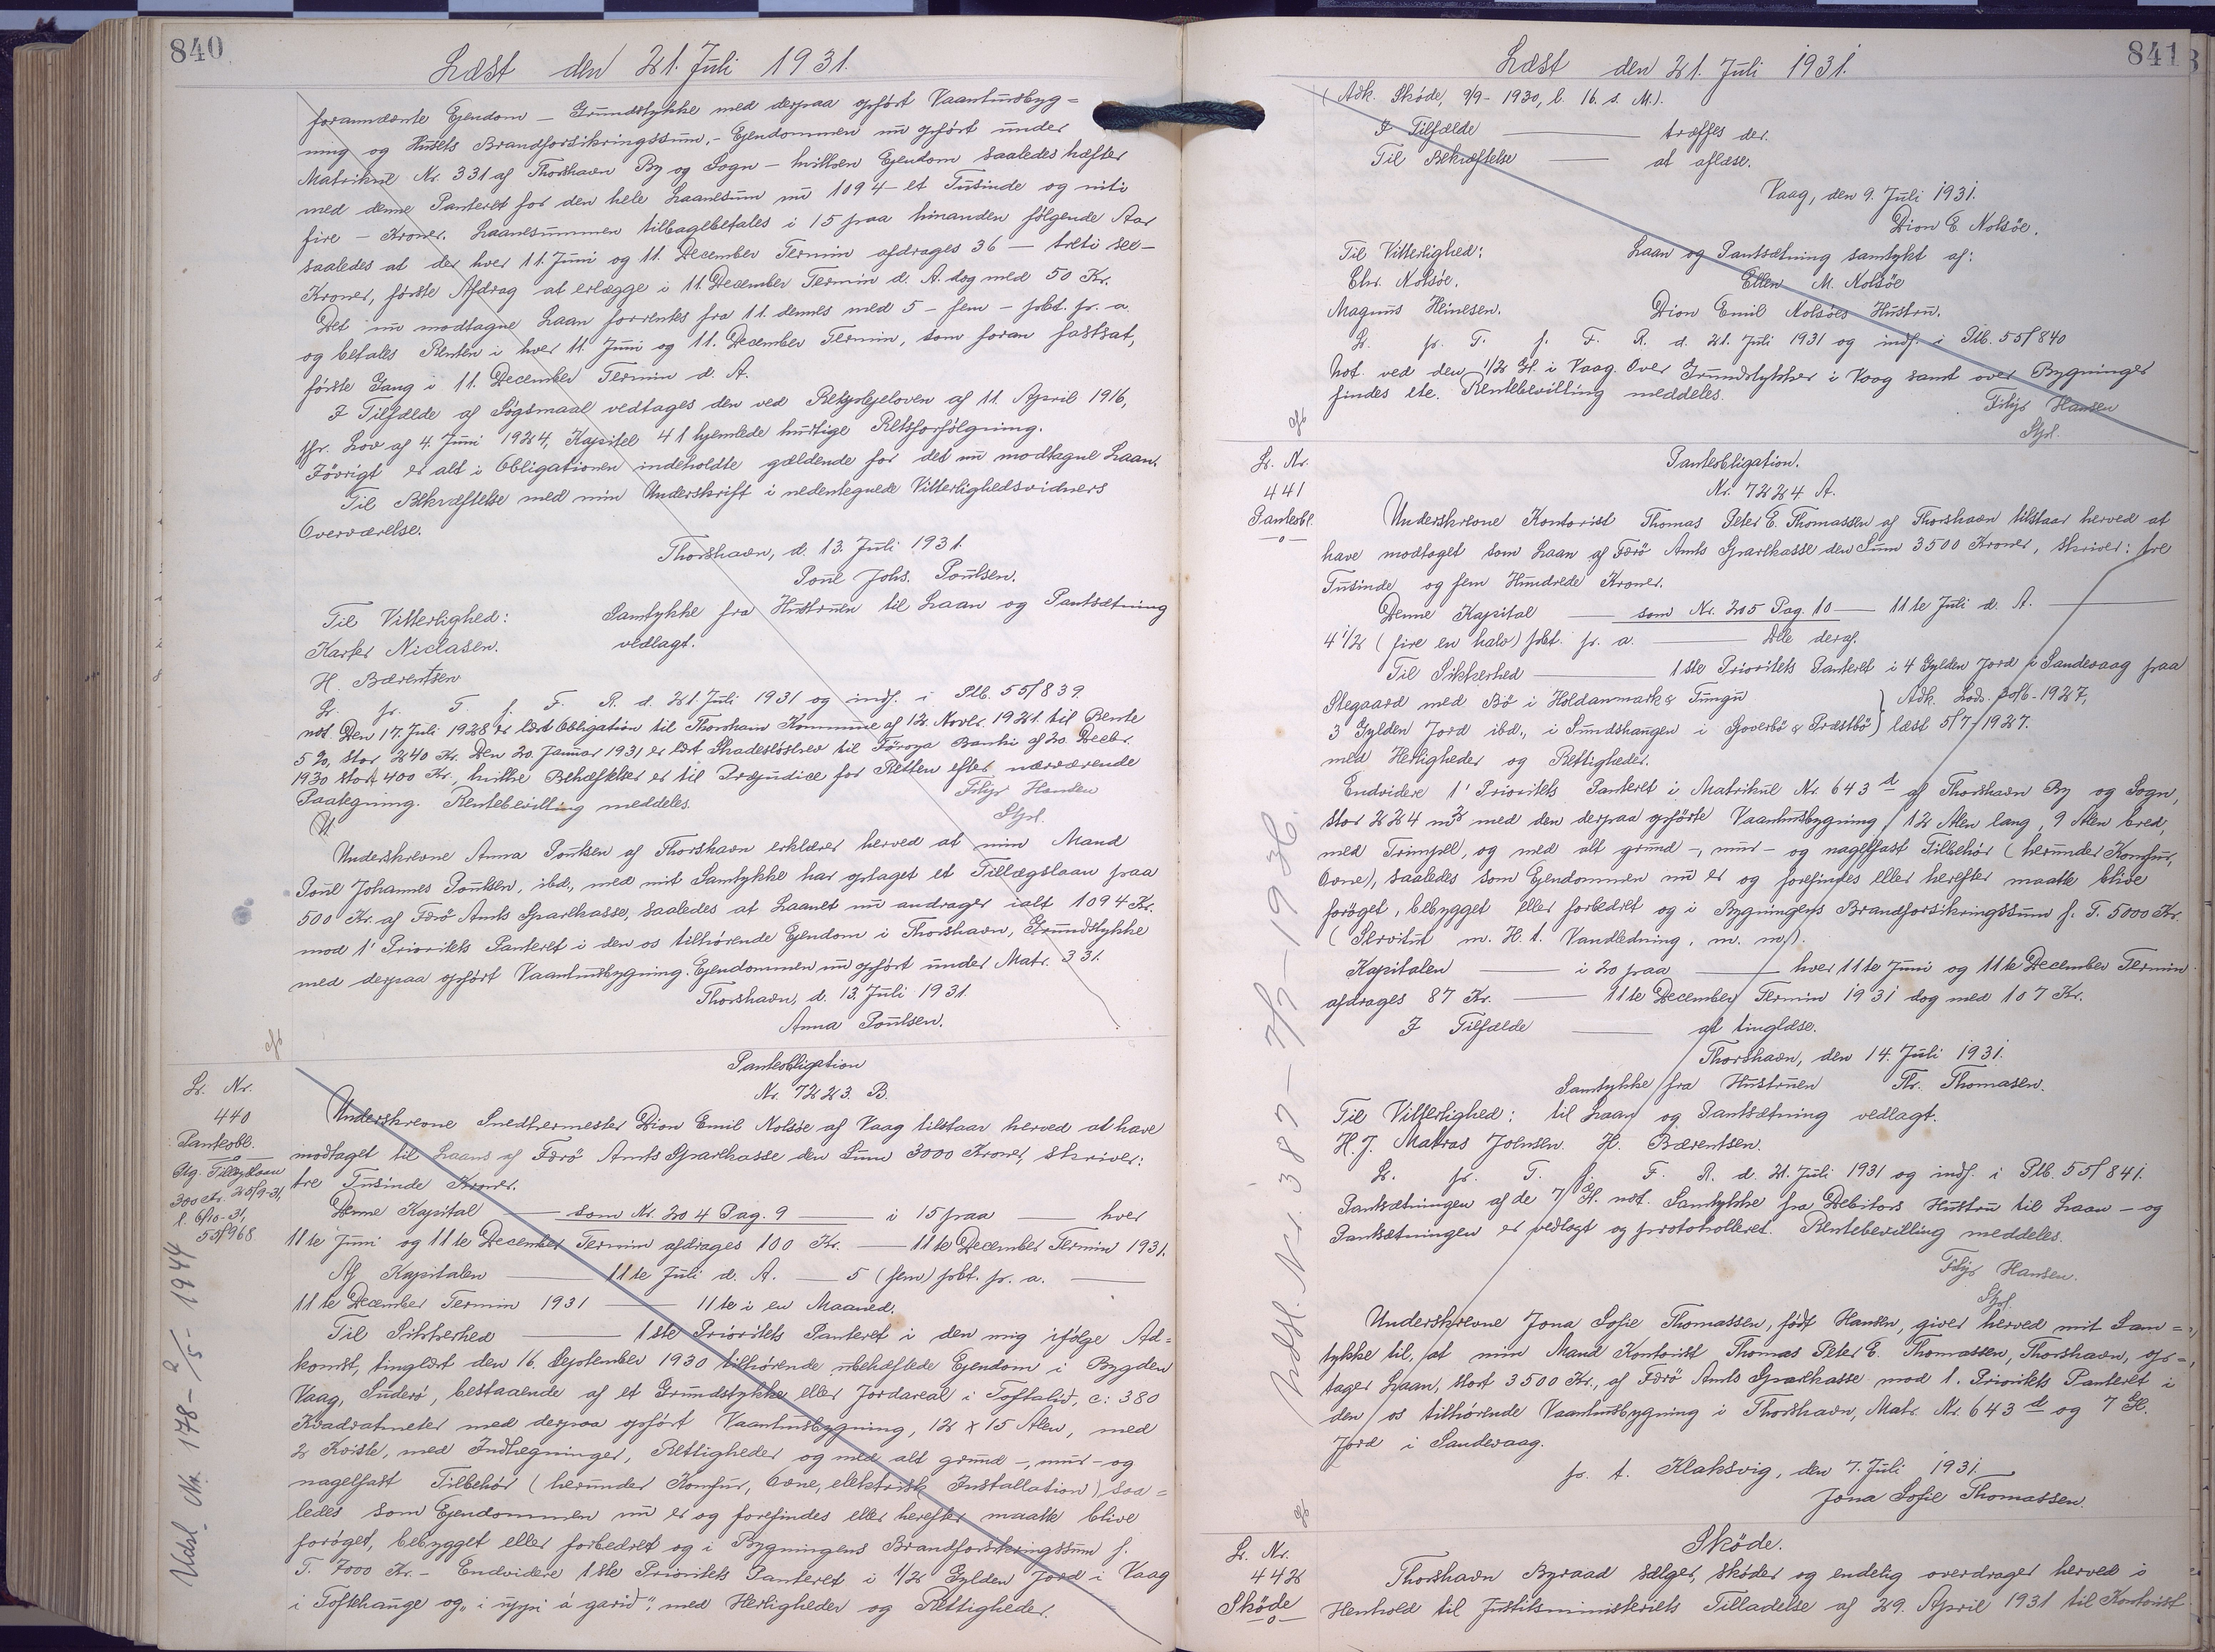 840
Læst den 21. Juli 1931.
forannævnte Ejendom — Grundstykke med derpaa opført Vaaningsbyg=
ning og Husets Brandforsikringssum, - Ejendommen nu opført under
Matrikul Nr. 331 af Thorshavn By og Sogn — hvilken Ejendom saaledes hæfter
med denne Panteret for den hele Laanesum nu 1094 — et Tusinde og niti
fire — Kroner. Laanesummen tilbagebetales i 15 paa hinanden følgende Aar
saaledes at der hver 11. Juni og 11. December Termin afdrages 36 — treti sex —
Kroner, første Afdrag at erlægge i 11. December Termin d. A. dog med 50 Kr.
Det nu modtagne Laan forrentes fra 11. dennes med 5 — fem — pCt. pr. a.
og betales Renten i hver 11. Juni og 11. December Termin, som foran fastsat,
første Gang i 11. December Termin d. A.
I Tilfælde af Søgsmaal vedtages den ved Retsplejeloven af 11. April 1916,
jfr. Lov af 4. Juni 1924, Kapitel 41 hjemlede hurtige Retsforfølgning.
Iøvrigt er alt i Obligationen indeholdte gældende for det nu modtagne Laan.
Til Bekræftelse med min Underskrift i nedentegnede Vitterlighedsvidners
Overværelse.
Thorshavn, d. 13. Juli 1931.
Poul Johs. Poulsen.
Til Vitterlighed: Samtykke fra Hustruen til Laan og Pantsætning
Karfer Niclasen. vedlagt.
H. Bærentsen
L. pr. T. f. F. R. d. 21. Juli 1931 og indf. i Ptb. 55/839.
not. Den 17. Juli 1928 er læst Obligation til Thorshavn Kommune af 12. Novbr. 1921 til Rente
5 %, stor 240 Kr. Den 20. Januar 1931 er læst Skadesløsbrev til Föroya Banki af 20. Decbr.
1930 stort 400 Kr., hvilke Behæftelser er til Præjudice for Retten efter nærværende
Paategning. Rentebevilling meddeles.
Filip Hansen
Stfd.
Underskrevne Anna Poulsen af Thorshavn erklærer herved at min Mand
Poul Johannes Poulsen, ibd., med mit Samtykke har optaget et Tillægslaan paa
500 Kr. af Færø Amts Sparekasse, saaledes at Laanet nu andrager ialt 1094 Kr.
mod 1' Prioritets Panteret i den os tilhørende Ejendom i Thorshavn, Grundstykke
med derpaa opført Vaaningsbygning. Ejendommen nu opført under Matr. 331.
Thorshavn, d. 13. Juli 1931.
Anna Poulsen.
L. Nr.
440
Panteobl.
Ptg. Tillægslaan
300 Kr. 25/9-31,
l. 6/10-31,
55/968
Udsl. Nr. 178 - 2/5 - 1944
Panteobligation
Nr. 7223. B.
Underskrevne Snedkermester Dion Emil Nolsøe af Vaag tilstaar herved at have
modtaget til Laans af Færö Amts Sparekasse den Sum 3000 Kroner, skriver:
tre Tusinde Kroner.
Denne Kapital — som Nr. 204 Pag. 9 — i 15 paa — hver
11te Juni og 11te December Termin afdrages 100 Kr. — 11te December Termin 1931.
Af Kapitalen — 11te Juli d. A. — 5 (fem) pCt. pr. a. —
11te December Termin 1931 — 11te i en Maaned.
Til Sikkerhed — 1ste Prioritets Panteret i den mig ifølge Ad=
komst, tinglæst den 16. September 1930 tilhørende ubehæftede Ejendom i Bygden
Vaag, Suderø, bestaaende af et Grundstykke eller Jordareal i Toftalid, c: 380
Kvadratmeter med derpaa opført Vaaningsbygning, 12 x 15 Alen, med
2 Kviste, med Indhegninger, Rettigheder og med alt grund -, mur - og
nagelfast Tilbehør (herunder Komfur, Ovne, elektrisk Installation) saa=
ledes som Ejendommen nu er og forefindes eller herefter maatte blive
forøget, bebygget eller forbedret og i Bygningens Brandforsikringssum f.
T. 7000 Kr. — Endvidere 1ste Prioritets Panteret i 1/2 Gylden Jord i Vaag
i Toftehauge og „i uppi á garid", med Herligheder og Rettigheder.
841
Læst den 21. Juli 1931.
(Adk. Skøde, 9/9 - 1930, l. 16. s. M.).
I Tilfælde — træffes der.
Til Bekræftelse — at aflæse.
Vaag, den 9. Juli 1931.
Dion E. Nolsöe.
Til Vitterlighed: Laan og Pantsætning samtykt af:
Chr. Nolsöe. Ellen M. Nolsöe
Magnus Heinesen. Dion Emil Nolsöes Hustru.
L. pr. T. f. F. R. d. 21. Juli 1931 og indf. i Ptb. 55/840
Not. ved den 1/2 Gl. i Vaag. Over Grundstykker i Vaag samt over Bygninger
findes ete. Rentebevilling meddeles.
Filip Hansen
Stfd.
L. Nr.
441
Panteobl.
Udsl. Nr. 387 - 7/7 - 1936.
Panteobligation.
Nr. 7224 A.
Underskrevne Kontorist Thomas Peter E. Thomassen af Thorshavn tilstaar herved at
have modtaget som Laan af Færö Amts Sparekasse den Sum 3500 Kroner, skriver: tre
Tusinde og fem Hundrede Kroner.
Denne Kapital — som Nr. 205 Pag. 10 — 11te Juli d. A. —
4 1/2 (fire en halv) pCt. pr. a. — Alle deraf.
Til Sikkerhed — 1ste Prioritets Panteret i 4 Gylden Jord i Sandevaag paa
Stegaard med Bö i Holdanmark & Tungu } Adk. Lods. 30/6 - 1927,
3 Gylden Jord ibd., i Sundshaugen i Goverbö & Præstbö } læst 5/7 1927.
med Herligheder og Rettigheder.
Endvidere 1' Prioritets Panteret i Matrikul Nr. 643 d af Thorshavn By og Sogn,
stor 224 m2 med den derpaa opførte Vaaningsbygning 12 Alen lang, 9 Alen bred,
med Trempel, og med alt grund -, mur - og nagelfast Tilbehør (herunder Komfur,
Ovne), saaledes som Ejendommen nu er og forefindes eller herefter maatte blive
forøget, bebygget eller forbedret og i Bygningens Brandforsikringssum f. T. 5000 Kr.
(Servitut m. H. t. Vandledning, m. m.).
Kapitalen — i 20 paa — hver 11te Juni og 11te December Termin
afdrages 87 Kr. — 11te December Termin 1931 dog med 107 Kr.
I Tilfælde — at tinglæse.
Thorshavn, den 14. Juli 1931.
Samtykke fra Hustruen Th. Thomasen.
Til Vitterlighed: til Laan og Pantsætning vedlagt.
H. J. Matras Joensen. H. Bærentsen.
L. pr. T. f. F. R. d. 21. Juli 1931 og indf. i Ptb. 55/841.
Pantsætningen af de 7 Gl. not. Samtykke fra Debitors Hustru til Laan — og
Pantsætningen er vedlagt og protokolleret. Rentebevilling meddeles.
Filip Hansen.
Stfd.
Underskrevne Jona Sofie Thomassen, født Hansen, giver herved mit Sam=
tykke til, at min Mand Kontorist Thomas Peter E. Thomassen, Thorshavn, op=
tager Laan, stort 3500 Kr., af Færö Amts Sparekasse mod 1. Prioritets Panteret i
den os tilhørende Vaaningsbygning i Thorshavn, Matr. Nr. 643 d og 7 Gl.
Jord i Sandevaag.
p. t. Klaksvig, den 7. Juli 1931.
Jona Sofie Thomassen.
L. Nr.
442
Skøde
Skøde.
Thorshavn Byraad sælger, skøder og endelig overdrager herved i
Henhold til Justitsministeriets Tilladelse af 29. April 1931 til Kontorist